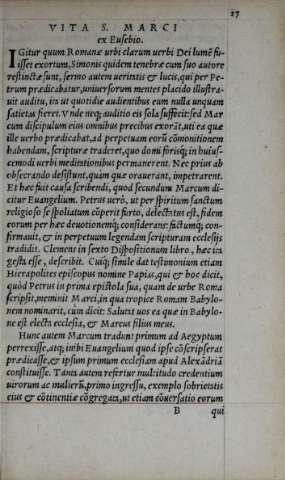 27
VITA S. MARCI
ex Eusebio.
IGitur quum Romanæ urbi clarum uerbi Dei lumē fu-
isset exortum, Simonis quidem tenebræ cum suo autore
restinctæ sunt, sermo autem ueritatis & lucis, qui per Pe-
trum prædicabatur, uniuersorum mentes placido illustra-
uit auditu, ita ut quotidie audientibus eum nulla unquam
satietas fieret. Vnde neq; auditio eis sola suffecit: sed Mar
cum discipulum eius omnibus precibus exorāt, uti ea quæ
ille uerbo prædicabat, ad perpetuam eorū cōmonitionem
habendam, scripturæ traderet, quo domi forisq; in huius-
cemodi uerbi meditationibus permanerent. Nec prius ab
obsecrando desistunt, quàm quæ orauerant, impetrarent.
Et hæc fuit causa scribendi, quod secundum Marcum di-
citur Euangelium. Petrus uerò, ut per spiritum sanctum
religioso se spoliatum cōperit furto, delectatus est, fidem
eorum per hæc deuotionemq; considerans: factumq; con-
firmauit, & in perpetuum legendam scripturam ecclesijs
tradidit. Clemens in sexto Dispositionum libro, hæc ita
gesta esse, describit. Cuiq; simile dat testimonium etiam
Hierapolites episcopus nomine Papias, qui & hoc dicit,
quòd Petrus in prima epistola sua, quam de urbe Roma
scripsit, meminit Marci, in qua tropice Romam Babylo-
nem nominarit, cùm dicit: Salutat uos ea quæ in Babylo-
ne est electa ecclesia, & Marcus filius meus.
Hunc autem Marcum tradunt primum ad Aegyptum
perrexisse, atq; inibi Euangelium quod ipse cōscripserat
prædicasse, & ipsum primum ecclesiam apud Alexādriā
constituisse. Tanta autem refertur multitudo credentium
uirorum ac mulierū, primo ingressu, exemplo sobrietatis
eius & cōtinentiæ cōgregata, ut etiam cōuersatio eorum
B qui